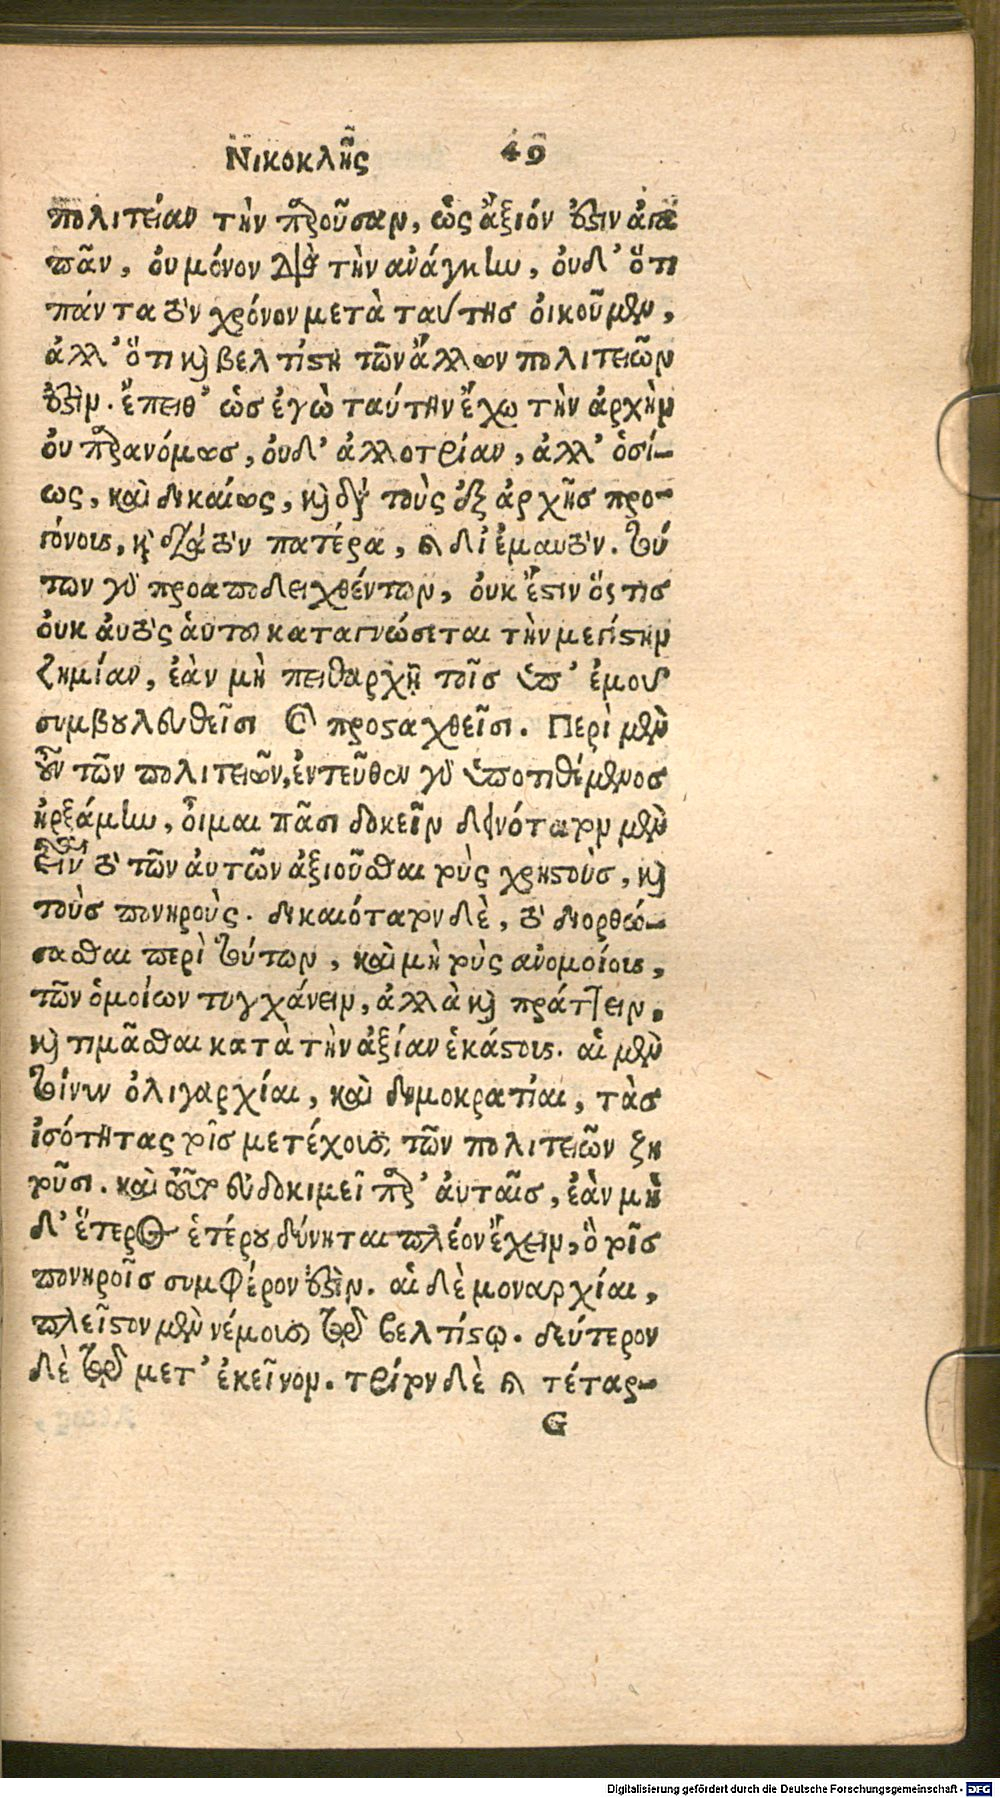 Νικοκλῆς 49
πολιτείαν τὴν παροῦσαν, ὡς ἄξιόν ἐστιν ἀγα
πᾶν, ὀυ μόνον διὰ τὴν ἀνάγκην, ὀυδ᾽ ὅτι
πάντα τὸν χρόνον μετὰ ταύτης ὀικοῦμεν,
ἀλλ᾽ ὅτι καὶ βελτίστη τῶν ἄλλων πολιτειῶν
ἐστὶν. ἔπειθ᾽ ὡς ἐγὼ ταύτην ἔχω τὴν ἀρχὴν
ὀυ παρανόμως, ὀυδ᾽ ἀλλοτρίαν, ἀλλ᾽ ὁσί-
ως, καὶ δικαίως, καὶ διὰ τοὺς ἐξ ἀρχῆς προ-
γόνους, καὶ διὰ τὸν πατέρα, καὶ δι᾽ ἐμαυτόν. τού
των γὰρ προαποδειχθέντων, ὀυκ ἔστιν ὅστις
ὀυκ ἀυτὸς ἁυτοῦ καταγνώσεται τὴν μεγίστην
ζημίαν, ἐὰν μὴ πειθαρχῇ τοῖς ὑπ᾽ ἐμοῦ
συμβουλευθεῖσι καὶ προσταχθεῖσι. Περὶ μὲν
οὖν τῶν πολιτειῶν, ἐντεῦθεν γὰρ ὑποτιθέμενος
ἠρξάμην, ὄιμαι πᾶσι δοκεῖν δεινότατον μὲν
εἶναι τὸ τῶν ἀυτῶν ἀξιοῦσθαι τοὺς χρηστοὺς, καὶ
τοὺς πονηροὺς. δικαιότατον δὲ, τὸ διορθώ-
σασθαι περὶ τούτων, καὶ μὴ τοὺς ἀνομοίους,
τῶν ὁμοίων τυγχάνειν, ἀλλὰ καὶ πράττειν,
καὶ τιμᾶσθαι κατὰ τὴν ἀξίαν ἑκάστους. αἱ μὲν
τοίνυν ὀλιγαρχίαι, καὶ δημοκρατίαι, τὰς
ἰσότητας τοῖς μετέχουσι τῶν πολιτειῶν ζη
τοῦσι. καὶ τοῦτο ἐυδοκιμεῖ παρ᾽ ἀυταῖς, ἐὰν μὴ
δ᾽ ἕτερος ἑτέρου δύνηται πλέον ἔχειν, ὃ τοῖς
πονηροῖς συμφέρον ἐστὶν. αἱ δὲ μοναρχίαι,
πλεῖστον μὲν νέμουσι τῷ βελτίστῳ. δεύτερον
δὲ τῷ μετ᾽ ἐκεῖνον. τρίτον δὲ καὶ τέταρ-
G
Digitalisierung gefördert durch die Deutsche Forschungsgemeinschaft - DFG